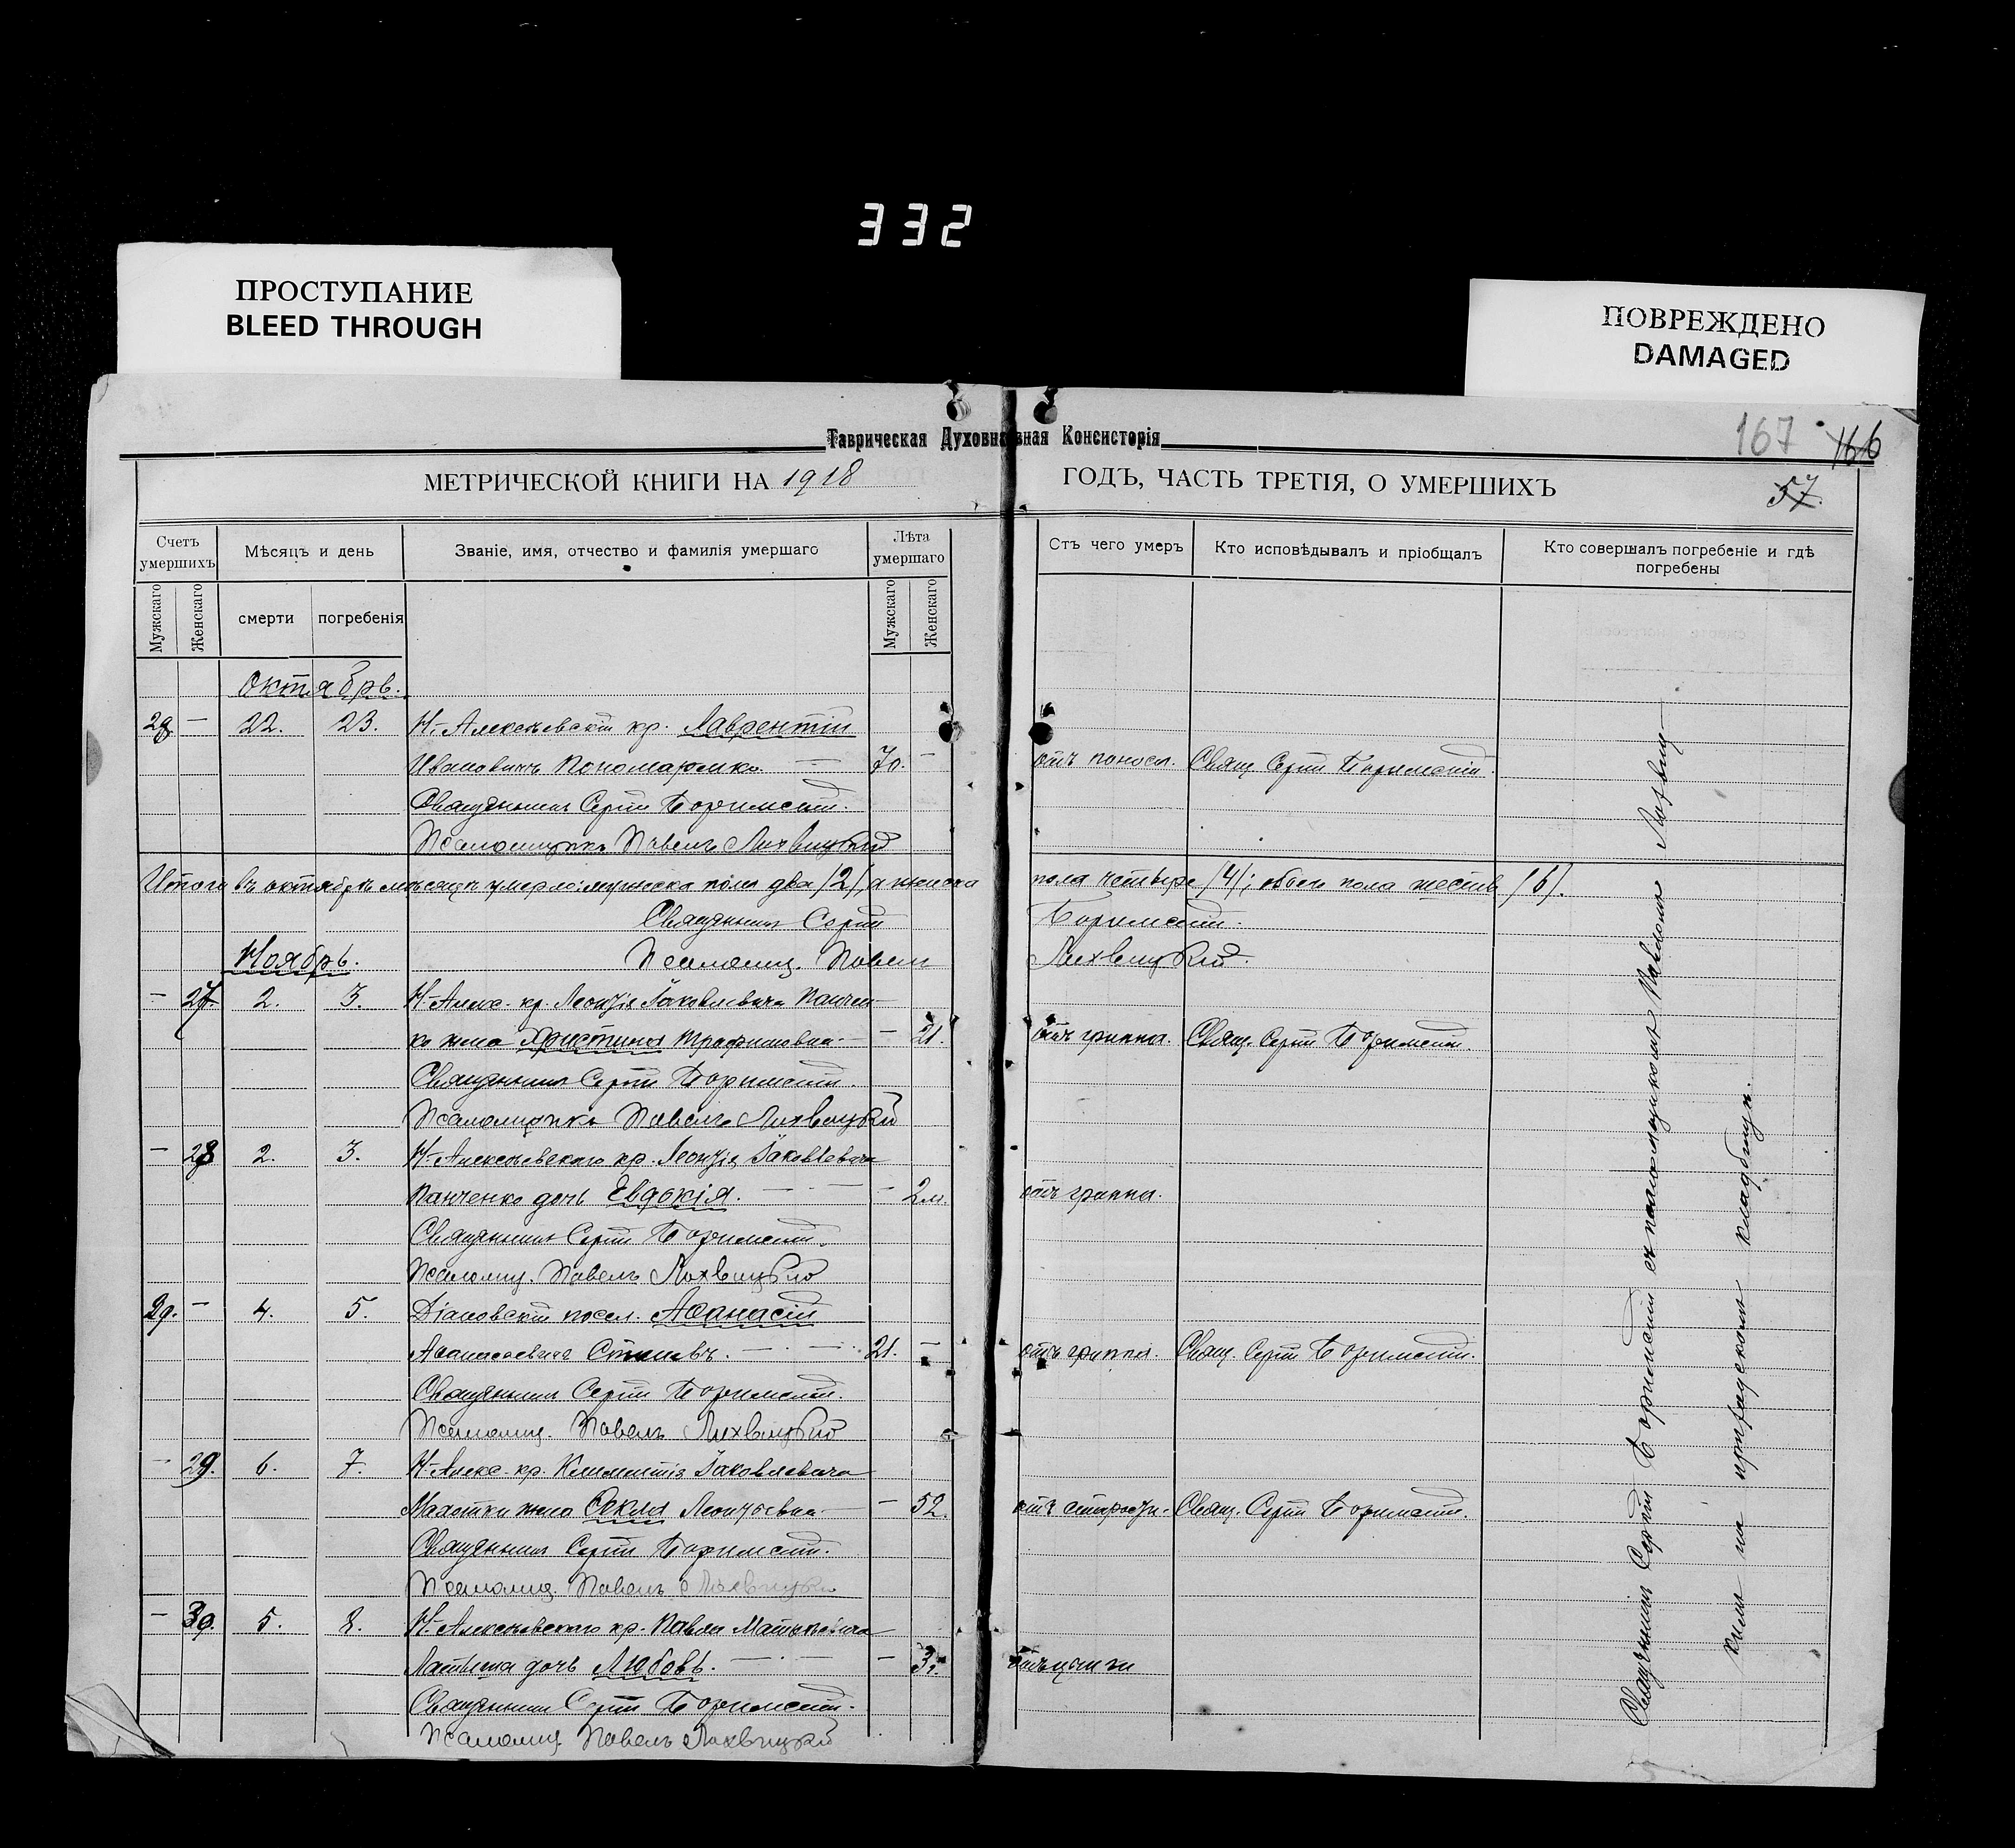 332
ПРОСТУПАНИЕ
BLEED THROUGH
ПОВРЕЖДЕНО
DAMAGED
Таврическая Духовная Консисторія
167 166
МЕТРИЧЕСКОЙ КНИГИ НА 1918 ГОДЪ, ЧАСТЬ ТРЕТІЯ, О УМЕРШИХЪ
57.
Счетъ умершихъ
Мѣсяцъ и день
Званіе, имя, отчество и фамилія умершаго
Лѣта умершаго
Отъ чего умеръ
Кто исповѣдывалъ и пріобщалъ
Кто совершалъ погребеніе и гдѣ погребены
Мужскаго
Женскаго
смерти
погребенія
Мужскаго
Женскаго
Октябрь.
28 — 22. 23. Н.-Алексѣевскій кр. Лаврентій
Ивановичъ Пономаренко. — 70. — отъ поноса. Свящ. Сергій
Священникъ Сергій
Псаломщикъ Павелъ Лихвицкій
Итого въ октябрѣ мѣсяцѣ умерло: мужеска пола два /2/, а женска пола четыре /4/; обоего пола шесть /6/.
Священникъ Сергій
Ноябрь. Псаломщ. Павелъ Лихвицкій.
— 27. 2. 3. Н.-Алекс. кр. Леонтія Іаковлевича Панчен-
ко жена Христина Трофимовна. — — 21. отъ гриппа. Свящ. Сергій
Священникъ Сергій
Псаломщикъ Павелъ Лихвицкій
— 28 2. 3. Н-Алексѣевского кр. Леонтія Іаковлевича
Панченко дочь Евдокія. — — — 2 м. отъ гриппа.
Священникъ Сергій
Псаломщ. Павелъ Лихвицкій
29. — 4. 5. Діановскій посел. Аѳанасій
Аѳанасьевичъ — 21. — отъ гриппа. Свящ. Сергій
Священникъ Сергій
Псаломщ. Павелъ Лихвицкій
— 29. 6. 7. Н-Алекс. кр. Климентія Іаковлевича
Махотки жена Ѳекла Леонтьевна — — 52. отъ старости. Свящ. Сергій
Священникъ Сергій
Псаломщ. Павелъ Лихвицкій
— 30. 5. 8. Н-Алексѣевского кр. Павла Матвѣевича
дочь Любовь. — — — 3.
Священникъ Сергій
Псаломщ. Павелъ Лихвицкій
Священникъ Сергій съ псаломщикомъ Павломъ Лихвиц-
кимъ на приходскомъ кладбищѣ.